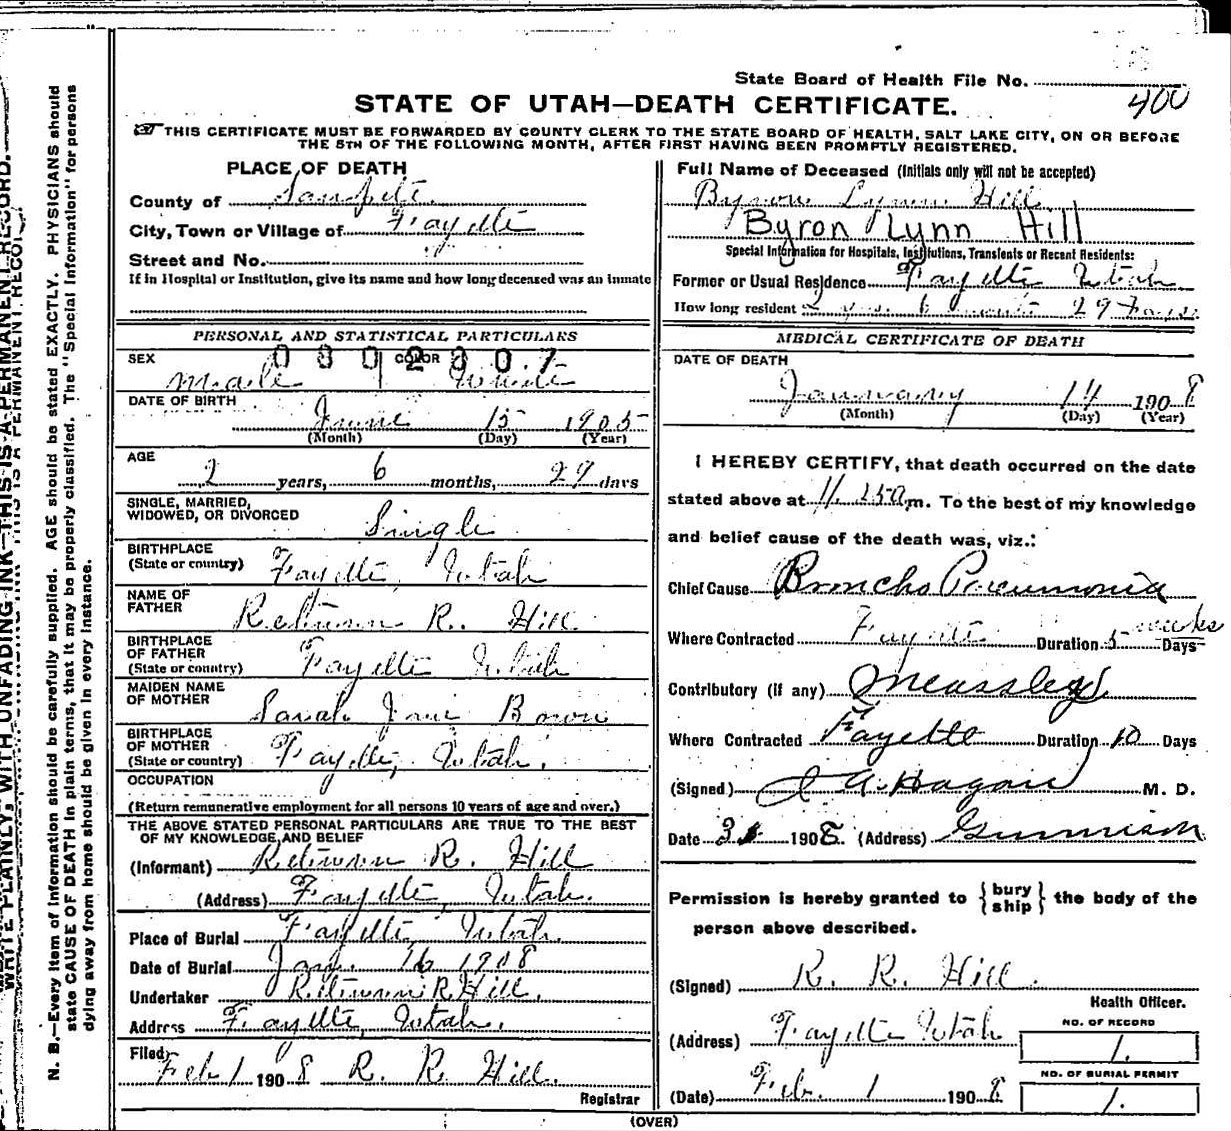 State Board of Health File No. 400
STATE OF UTAH—DEATH CERTIFICATE.
THIS CERTIFICATE MUST BE FORWARDED BY COUNTY CLERK TO THE STATE BOARD OF HEALTH, SALT LAKE CITY, ON OR BEFORE
THE 5TH OF THE FOLLOWING MONTH, AFTER FIRST HAVING BEEN PROMPTLY REGISTERED.
PLACE OF DEATH
County of Sanpete
City, Town or Village of Fayette
Street and No.
If in Hospital or Institution, give its name and how long deceased was an inmate
PERSONAL AND STATISTICAL PARTICULARS
0302307
SEX COLOR
Male White
DATE OF BIRTH
June 15 1905
(Month) (Day) (Year)
AGE
2 years, 6 months, 29 days
SINGLE, MARRIED,
WIDOWED, OR DIVORCED Single
BIRTHPLACE
(State or country) Fayette, Utah
NAME OF
FATHER R. Hill
BIRTHPLACE
OF FATHER
(State or country) Fayette Utah
MAIDEN NAME
OF MOTHER Sarah Jane Bown
BIRTHPLACE
OF MOTHER
(State or country) Fayette, Utah.
OCCUPATION
(Return remunerative employment for all persons 10 years of age and over.)
THE ABOVE STATED PERSONAL PARTICULARS ARE TRUE TO THE BEST
OF MY KNOWLEDGE AND BELIEF
(Informant) R. Hill
(Address) Fayette, Utah.
Place of Burial Fayette, Utah
Date of Burial Jan. 16 1908
Undertaker R. Hill.
Address Fayette, Utah.
Filed
Feb 1 1908 R. R. Hill.
Registrar
Full Name of Deceased (Initials only will not be accepted)
Byron Lynn Hill
Byron Lynn Hill
Special Information for Hospitals, Institutions, Transients or Recent Residents:
Former or Usual Residence Fayette Utah
How long resident 2 yrs. 6 months 29 days
MEDICAL CERTIFICATE OF DEATH
DATE OF DEATH
January 14 1908
(Month) (Day) (Year)
I HEREBY CERTIFY, that death occurred on the date
stated above at m. To the best of my knowledge
and belief cause of the death was, viz.:
Chief Cause Broncho Pneumonia
Where Contracted Fayette Duration 5 weeks Days
Contributory (if any) Meassles
Where Contracted Fayette Duration 10 Days
(Signed) J A. Hagan M. D.
Date 1908. (Address) Gunnison
Permission is hereby granted to { bury ship } the body of the
person above described.
(Signed) R. R. Hill.
Health Officer.
(Address) Fayette Utah
NO. OF RECORD
1.
NO. OF BURIAL PERMIT
1.
(Date) Feb. 1 1908
(OVER)
WRITE PLAINLY, WITH UNFADING INK—THIS IS A PERMANENT RECORD.
N. B.—Every item of information should be carefully supplied. AGE should be stated EXACTLY. PHYSICIANS should
state CAUSE OF DEATH in plain terms, that it may be properly classified. The "Special Information" for persons
dying away from home should be given in every instance.